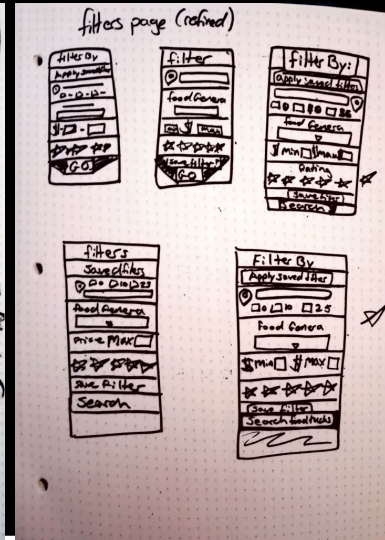 filters page (refined)
filter By
Apply saved filter
$ -
GO
filter
food Genera
$ max
save filter?
GO
filter By:
apply saved filter
food Genera
$ min $ max
Rating
Save filter
Search
filters
Saved filters
0 10 25
food Genera
Price Max
save Filter
Search
Filter By
Apply saved filter
0 10 25
food Genera
$ min $ max
Save filter
Search foodtrucks